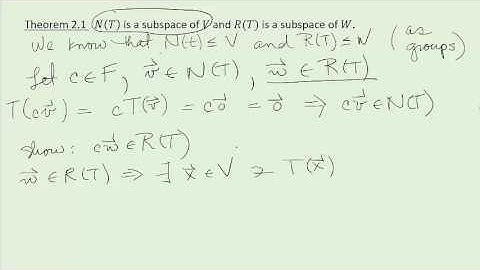 Theorem 2.1 N(T) is a subspace of V and R(T) is a subspace of W.
We know that N(t) ≤ V and R(T) ≤ W (as groups)
Let c ∈ F, v⃗ ∈ N(T), w⃗ ∈ R(T)
T(cv⃗) = cT(v⃗) = co⃗ = o⃗ ⇒ cv⃗ ∈ N(T)
show: cw⃗ ∈ R(T)
w⃗ ∈ R(T) ⇒ ∃ x⃗ ∈ V ∋ T(x⃗)